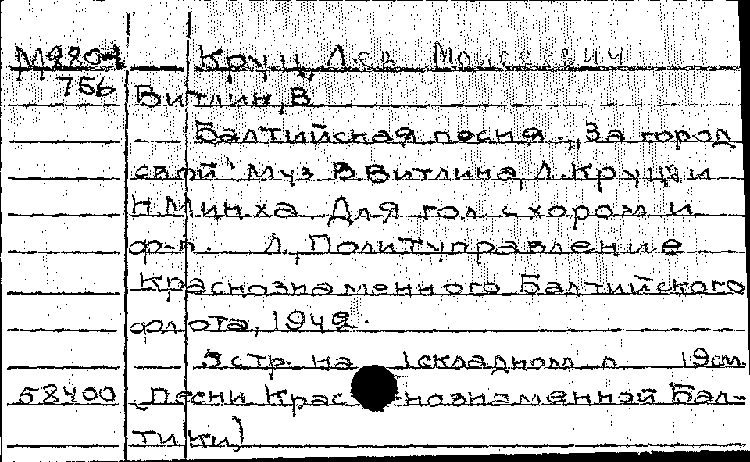 М9801 Круц, Лев Моисеевич
756 Витлин, В.
Балтийская песня. „За город
свой" Муз. В. Витлина, Л. Круца и
Н. Минха. Для гол. с хором и
ф-п. Л., Политуправление
Краснознаменного Балтийского
флота, 1942.
5 стр. на 1 складном л. 19 см.
58400 (Песни Краснознаменной Бал-
тики)